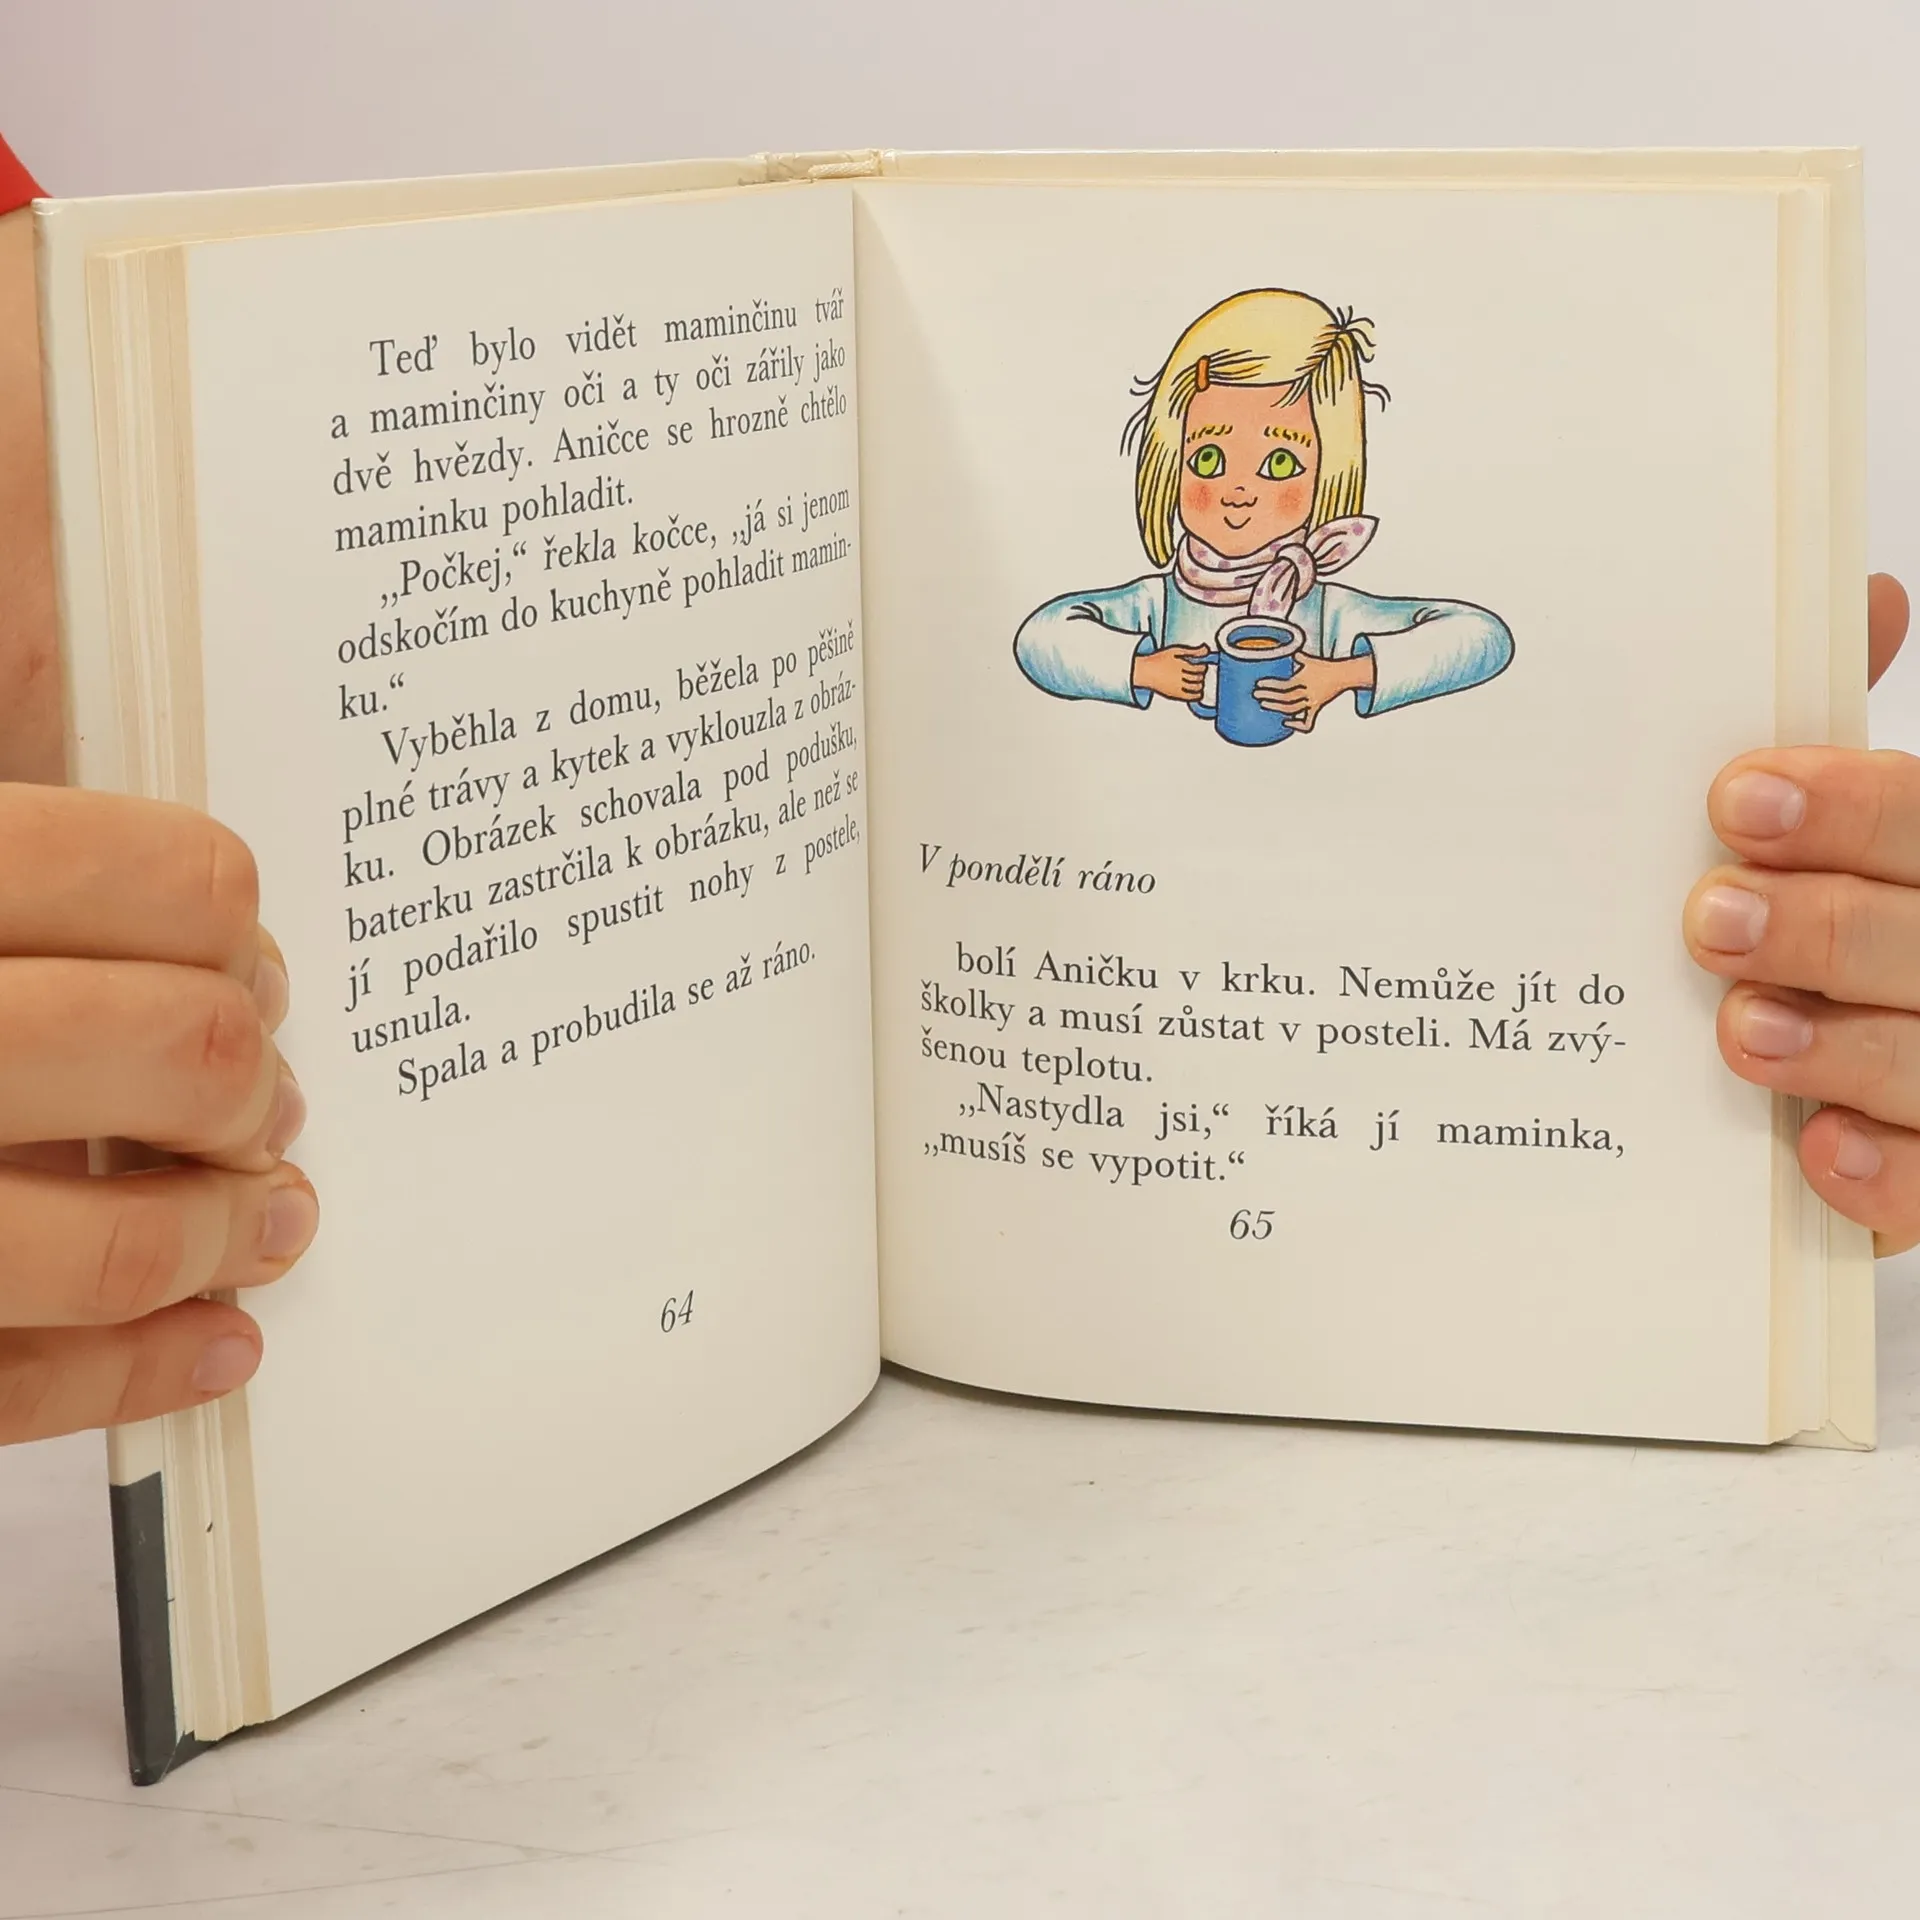 Teď bylo vidět maminčinu tvář
a maminčiny oči a ty oči zářily jako
dvě hvězdy. Aničce se hrozně chtělo
maminku pohladit.
„Počkej,“ řekla kočce, „já si jenom
odskočím do kuchyně pohladit mamin-
ku.“
Vyběhla z domu, běžela po pěšině
plné trávy a kytek a vyklouzla z obráz-
ku. Obrázek schovala pod podušku,
baterku zastrčila k obrázku, ale než se
jí podařilo spustit nohy z postele,
usnula.
Spala a probudila se až ráno.
64
V pondělí ráno
bolí Aničku v krku. Nemůže jít do
školky a musí zůstat v posteli. Má zvý-
šenou teplotu.
„Nastydla jsi,“ říká jí maminka,
„musíš se vypotit.“
65